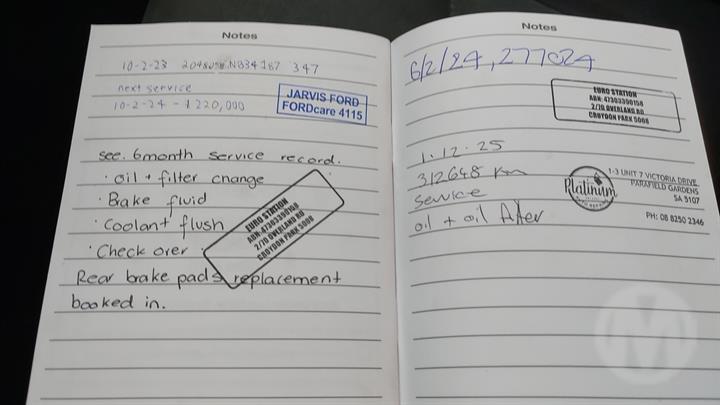 Notes
10-2-23 204805 NB34187 347
next service
10-2-24 - 220,000
JARVIS FORD
FORDcare 4115
see. 6month service record.
· oil + filter change
· Bake fluid
· Coolant flush
· Check over
Rear brake pads replacement
booked in.
EURO STATION
ABN: 47303390158
2/70 OVERLAND RD
CROYDON PARK 5008
Notes
6/2/24, 277024
EURO STATION
ABN: 47303390158
2/70 OVERLAND RD
CROYDON PARK 5008
1.12.25
312648 km
Service
oil + oil filter
Platinum
1-3 UNIT 7 VICTORIA DRIVE
PARAFIELD GARDENS
SA 5107
PH: 08 8250 2346